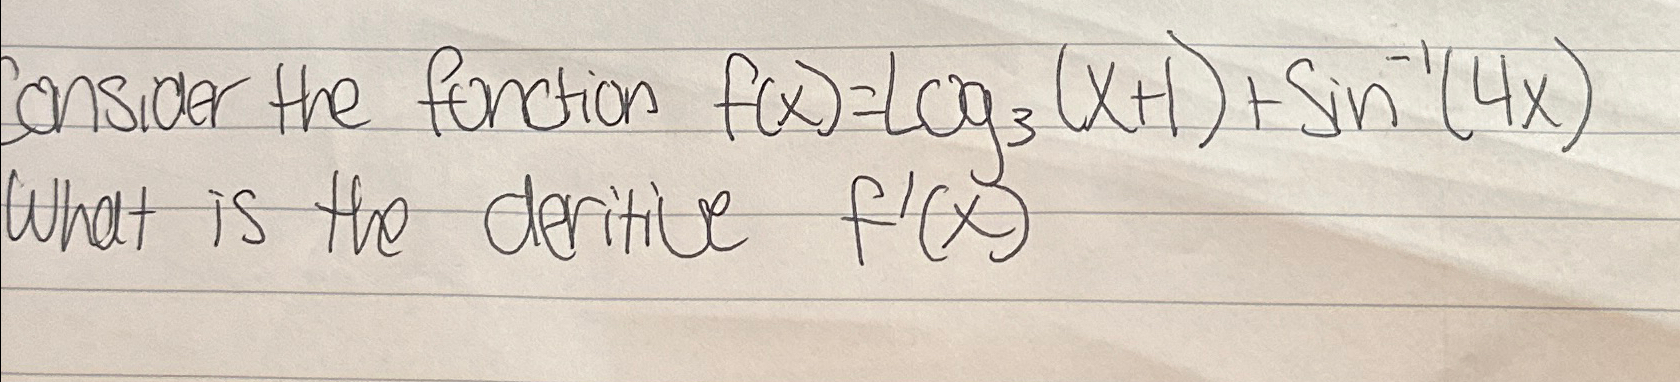 Consider the function f(x)=Log₃(x+1)+Sin⁻¹(4x)
What is the deritive f'(x)